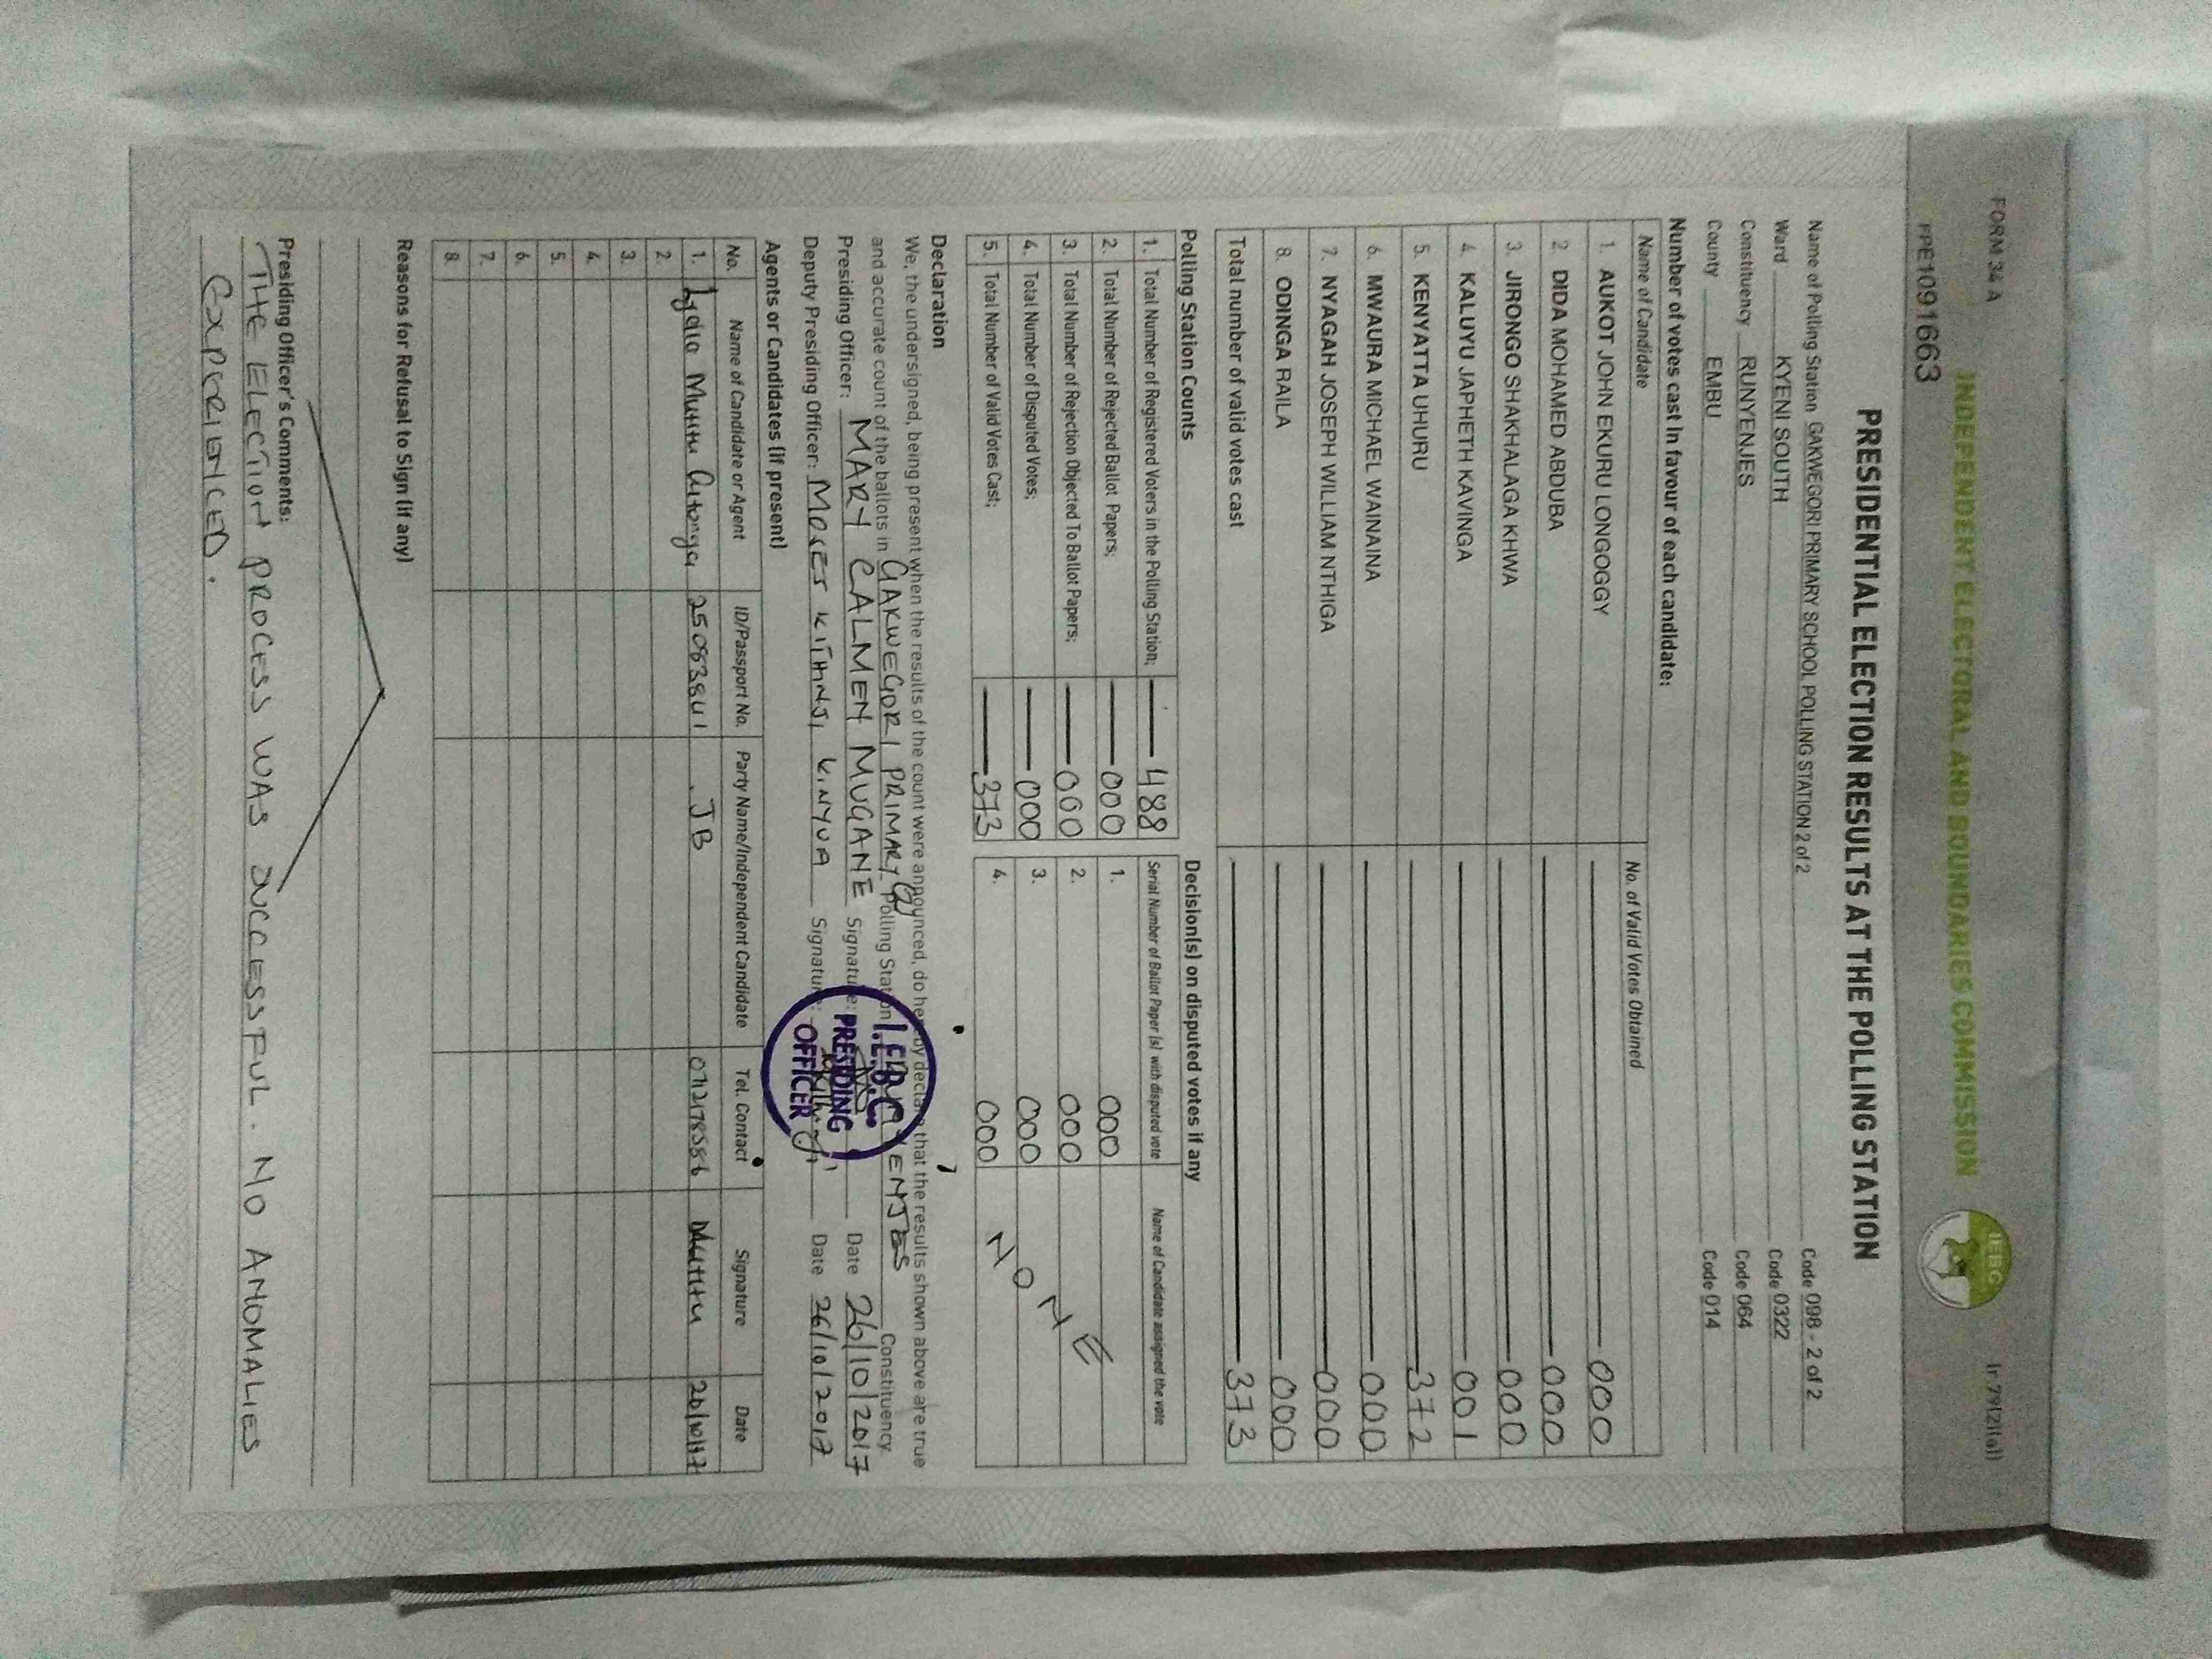 FORM 34 A
Ir 79(2)(a))
INDEPENDENT ELECTORAL AND BOUNDARIES COMMISSION
IEBC
PPE1091663
PRESIDENTIAL ELECTION RESULTS AT THE POLLING STATION
Name of Polling Station GAKWEGORI PRIMARY SCHOOL POLLING STATION 2 of 2 Code 098 - 2 of 2
Ward KYENI SOUTH Code 0322
Constituency RUNYENJES Code 064
County EMBU Code 014
Number of votes cast in favour of each candidate:
Name of Candidate No. of Valid Votes Obtained
1. AUKOT JOHN EKURU LONGOGGY 000
2. DIDA MOHAMED ABDUBA 000
3. JIRONGO SHAKHALAGA KHWA 000
4. KALUYU JAPHETH KAVINGA 001
5. KENYATTA UHURU 372
6. MWAURA MICHAEL WAINAINA 000
7. NYAGAH JOSEPH WILLIAM NTHIGA 000
8. ODINGA RAILA 000
Total number of valid votes cast 373
Polling Station Counts
1. Total Number of Registered Voters in the Polling Station; 488
2. Total Number of Rejected Ballot Papers; 000
3. Total Number of Rejection Objected To Ballot Papers; 000
4. Total Number of Disputed Votes; 000
5. Total Number of Valid Votes Cast; 373
Decision(s) on disputed votes if any
Serial Number of Ballot Paper (s) with disputed vote Name of Candidate assigned the vote
1. 000
2. 000
3. 000
4. 000
NONE
Declaration
We, the undersigned, being present when the results of the count were announced, do hereby declare that the results shown above are true
and accurate count of the ballots in GAKWEGORI PRIMARY Polling Station Constituency.
Presiding Officer: MARY CALMEN MUGANE Signature: Date 26/10/2017
Deputy Presiding Officer: MOSES KITHINJI KINYUA Signature: Date 26/10/2017
I.E.B.C.
PRESIDING
OFFICER
Agents or Candidates (if present)
No. Name of Candidate or Agent ID/Passport No. Party Name/Independent Candidate Tel. Contact Signature Date
1. Lydia Muthu JB 26/10/17
2.
3.
4.
5.
6.
7.
8.
Reasons for Refusal to Sign (if any)
Presiding Officer's Comments:
THE ELECTION PROCESS WAS SUCCESSFUL. NO ANOMALIES
EXPERIENCED.